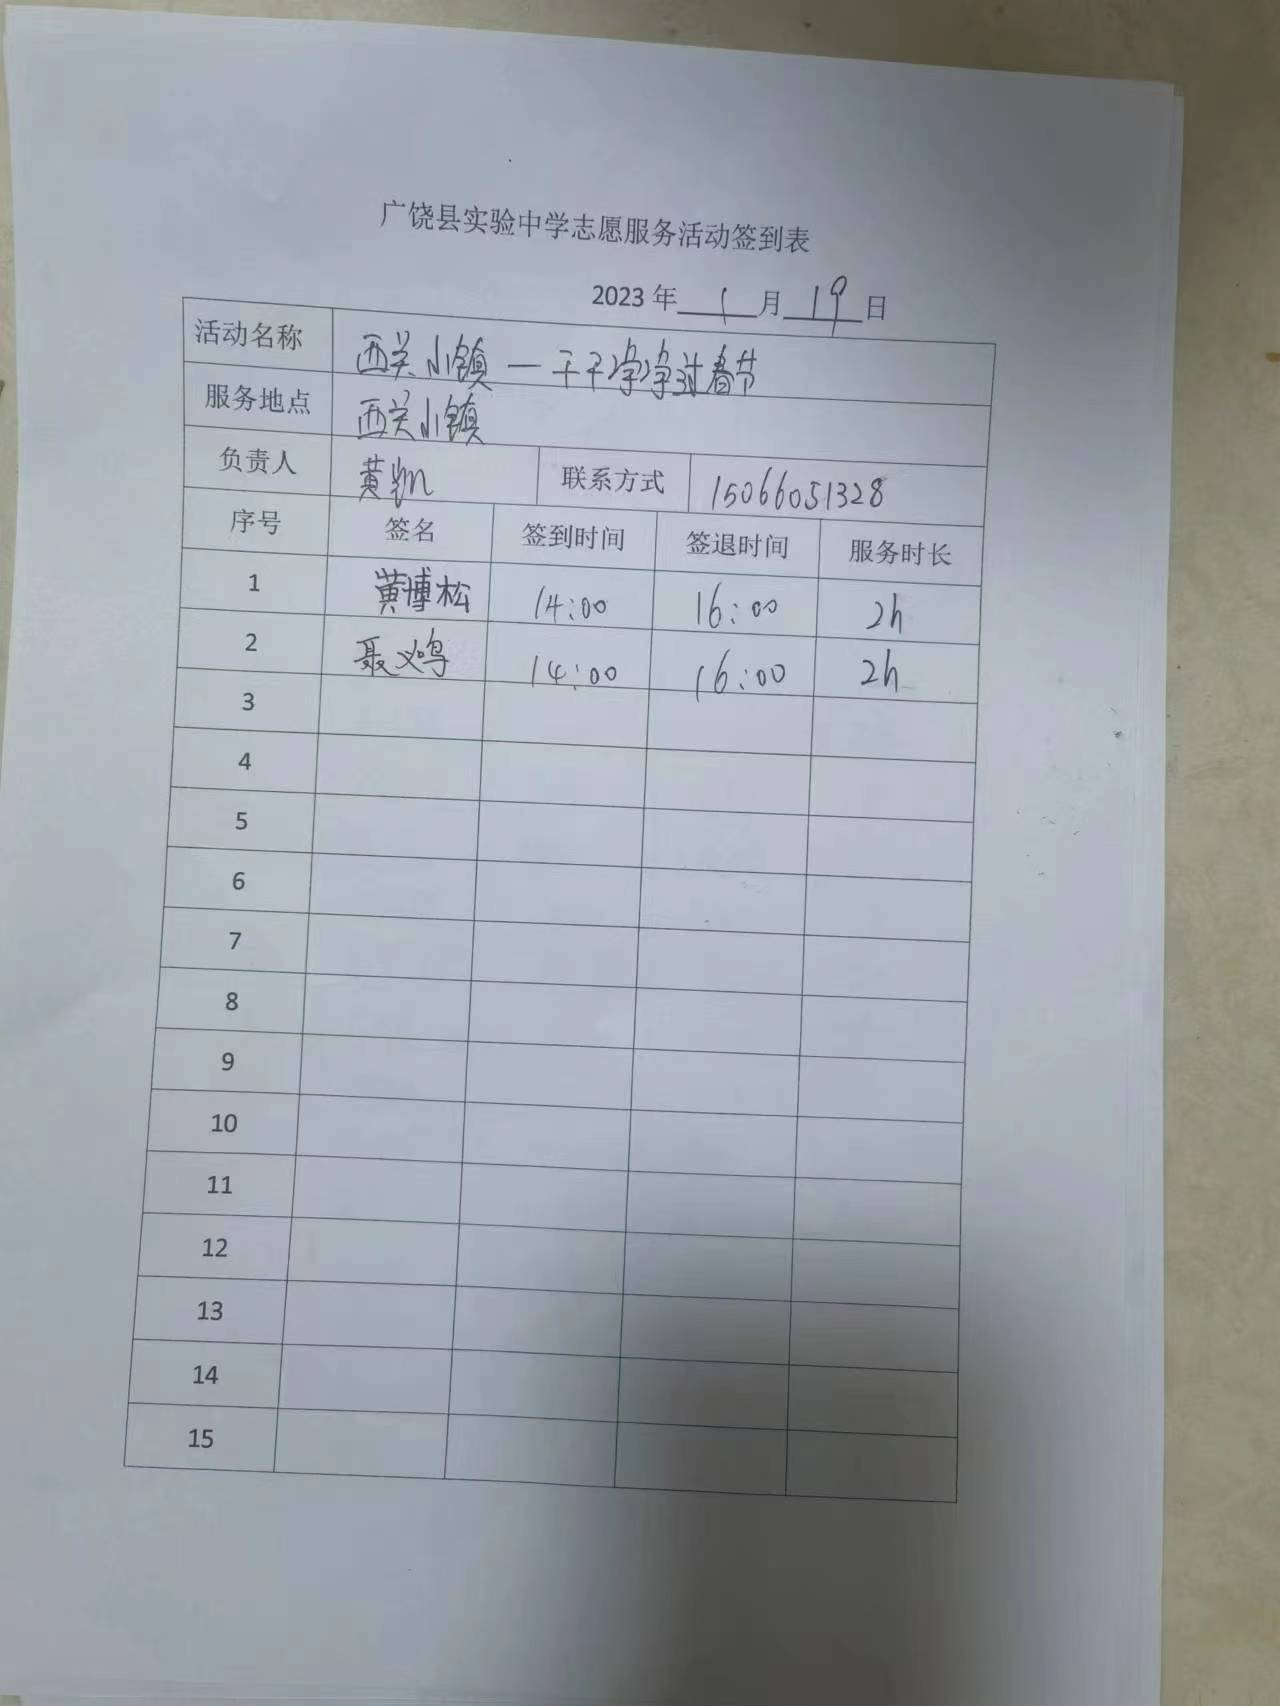 广饶县实验中学志愿服务活动签到表
2023 年 1 月 19 日
活动名称 西关小镇一干干净净过春节
服务地点 西关小镇
负责人 黄凯 联系方式 15066051328
序号 签名 签到时间 签退时间 服务时长
1 黄博松 14:00 16:00 2h
2 聂义鸣 14:00 16:00 2h
3
4
5
6
7
8
9
10
11
12
13
14
15